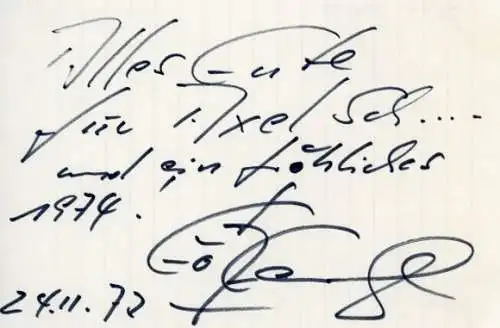 Alles Gute
für Axel Sch.....
und ein fröhliches
1974.
24.11.73